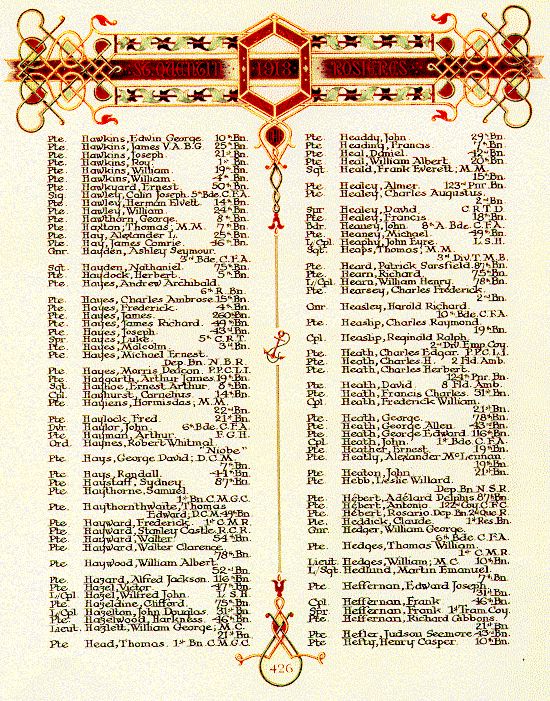 1918
Pte. Hawkins, Edwin George. 10th Bn.
Pte. Hawkins, James V.A.B.G. 25th Bn.
Pte. Hawkins, Joseph. 21st Bn.
Pte. Hawkins, Roy. 1st Bn.
Pte. Hawkins, William. 19th Bn.
Pte. Hawkins, William. 4th Bn.
Pte. Hawkyard, Ernest. 50th Bn.
Sig. Hawley, Colin Joseph. 5th Bde. C.F.A.
Pte. Hawley, Herman Elvett. 14th Bn.
Pte. Hawley, William. 24th Bn.
Pte. Hawthorn, George. 8th Bn.
Pte. Haxton, Thomas; M.M. 7th Bn.
Pte. Hay, Alexander L. 25th Bn.
Pte. Hay, James Comrie. 46th Bn.
Gnr. Hayden, Ashley Seymour.
3rd Bde. C.F.A.
Sgt. Hayden, Nathaniel. 75th Bn.
Pte. Haydock, Herbert. 5th Bn.
Pte. Hayes, Andrew Archibald.
6th R. Bn.
Pte. Hayes, Charles Ambrose. 15th Bn.
Pte. Hayes, Frederick. 4th Bn.
Pte. Hayes, James. 260th Bn.
Pte. Hayes, James Richard. 49th Bn.
Pte. Hayes, Joseph. 43rd Bn.
Spr. Hayes, Luke. 5th C.R.T.
Pte. Hayes, Malcolm. 3rd Bn.
Pte. Hayes, Michael Ernest.
Dep. Bn. N.B.R.
Pte. Hayes, Morris Dedcon. P.P.C.L.I.
Pte. Haygarth, Arthur James. 19th Bn.
Sgt. Hayhoe, Ernest Arthur. 8th Bn.
Cpl. Hayhurst, Cornelius. 14th Bn.
Pte. Hayiens, Hormisdas; M.M.
22nd Bn.
Pte. Haylock, Fred. 21st Bn.
Dvr. Haylor, John. 6th Bde. C.F.A.
Pte. Hayman, Arthur. F.G.H.
Ord. Haynes, Robert Whitmal.
"Niobe"
Pte. Hays, George David; D.C.M.
7th Bn.
Pte. Hays, Randall. 44th Bn.
Pte. Haystaff, Sydney. 87th Bn.
Pte. Haythorne, Samuel.
1st Bn. C.M.G.C.
Pte. Haythornthwaite, Thomas
Edward; D.C.M. 49th Bn.
Pte. Hayward, Frederick. 1st C.M.R.
Pte. Hayward, Stanley Castle. R.C.R.
Pte. Hayward, Walter. 54th Bn.
Pte. Hayward, Walter Clarence.
78th Bn.
Pte. Haywood, William Albert.
52nd Bn.
Pte. Hazard, Alfred Jackson. 116th Bn.
Pte. Hazel, Victor. 47th Bn.
L/Cpl. Hazel, Wilfred John. L.S.H.
Pte. Hazeldine, Clifford. 75th Bn.
L/Cpl. Hazelton, John Douglas. 31st Bn.
Pte. Hazelwood, Harkness. 46th Bn.
Lieut. Hazlett, William George; M.C.
21st Bn.
Pte. Head, Thomas. 1st Bn. C.M.G.C.
Pte. Headdy, John. 29th Bn.
Pte. Heading, Francis. 7th Bn.
Pte. Heal, Daniel. 42nd Bn.
Pte. Heal, William Albert. 20th Bn.
Sgt. Heald, Frank Everett; M.M.
15th Bn.
Pte. Healey, Almer. 123rd Pnr. Bn.
Pte. Healey, Charles Augustus.
2nd Bn.
Spr. Healey, David. C.R.T.D.
Pte. Healey, Francis. 18th Bn.
Bdr. Heaney, John. 8th A. Bde. C.F.A.
Pte. Heaney, Michael. 49th Bn.
L/Cpl. Heaphy, John Eyre. L.S.H.
Sgt. Heaps, Thomas; M.M.
3rd Div. T.M.B.
Pte. Heard, Patrick Sarsfield. 87th Bn.
Pte. Hearn, Richard. 75th Bn.
L/Cpl. Hearn, William Henry. 78th Bn.
Pte. Hearsey, Charles Frederick.
2nd Bn.
Gnr. Heasley, Harold Richard.
10th Bde. C.F.A.
Pte. Heaslip, Charles Raymond.
19th Bn.
Cpl. Heaslip, Reginald Ralph.
2nd Div. Emp. Coy.
Pte. Heath, Charles Edgar. P.P.C.L.I.
Pte. Heath, Charles H. 2 Fld. Amb.
Pte. Heath, Charles Herbert.
124th Pnr. Bn.
Pte. Heath, David. 8 Fld. Amb.
Pte. Heath, Francis Charles. 31st Bn.
Cpl. Heath, Frederick William.
21st Bn.
Pte. Heath, George. 78th Bn.
Pte. Heath, George Allen. 43rd Bn.
Pte. Heath, George Edward. 116th Bn.
Cpl. Heath, John. 1st Bde. C.F.A.
Pte. Heather, Ernest. 19th Bn.
Pte. Heatly, Alexander McLennan.
19th Bn.
Pte. Heaton, John. 21st Bn.
Pte. Hebb, Leslie Willard.
Dep. Bn. N.S.R.
Pte. Hébert, Adélard Delphis. 87th Bn.
Pte. Hébert, Antonio. 122nd Coy. C.F.C.
Pte. Hébert, Rosario. Dep. Bn. 2nd Que. R.
Pte. Heddick, Claude. 1st Res. Bn.
Gnr. Hedger, William George.
6th Bde. C.F.A.
Pte. Hedges, Thomas William.
1st C.M.R.
Lieut. Hedges, William; M.C. 10th Bn.
L/Sgt. Hedlund, Martin Emanuel.
7th Bn.
Pte. Heffernan, Edward Joseph.
31st Bn.
Cpl. Heffernan, Frank. 46th Bn.
Spr. Heffernan, Frank. 1st Tram. Coy.
Pte. Heffernan, Richard Gibbons.
21st Bn.
Pte. Hefler, Judson Seemore. 43rd Bn.
Pte. Hefty, Henry Casper. 10th Bn.
426